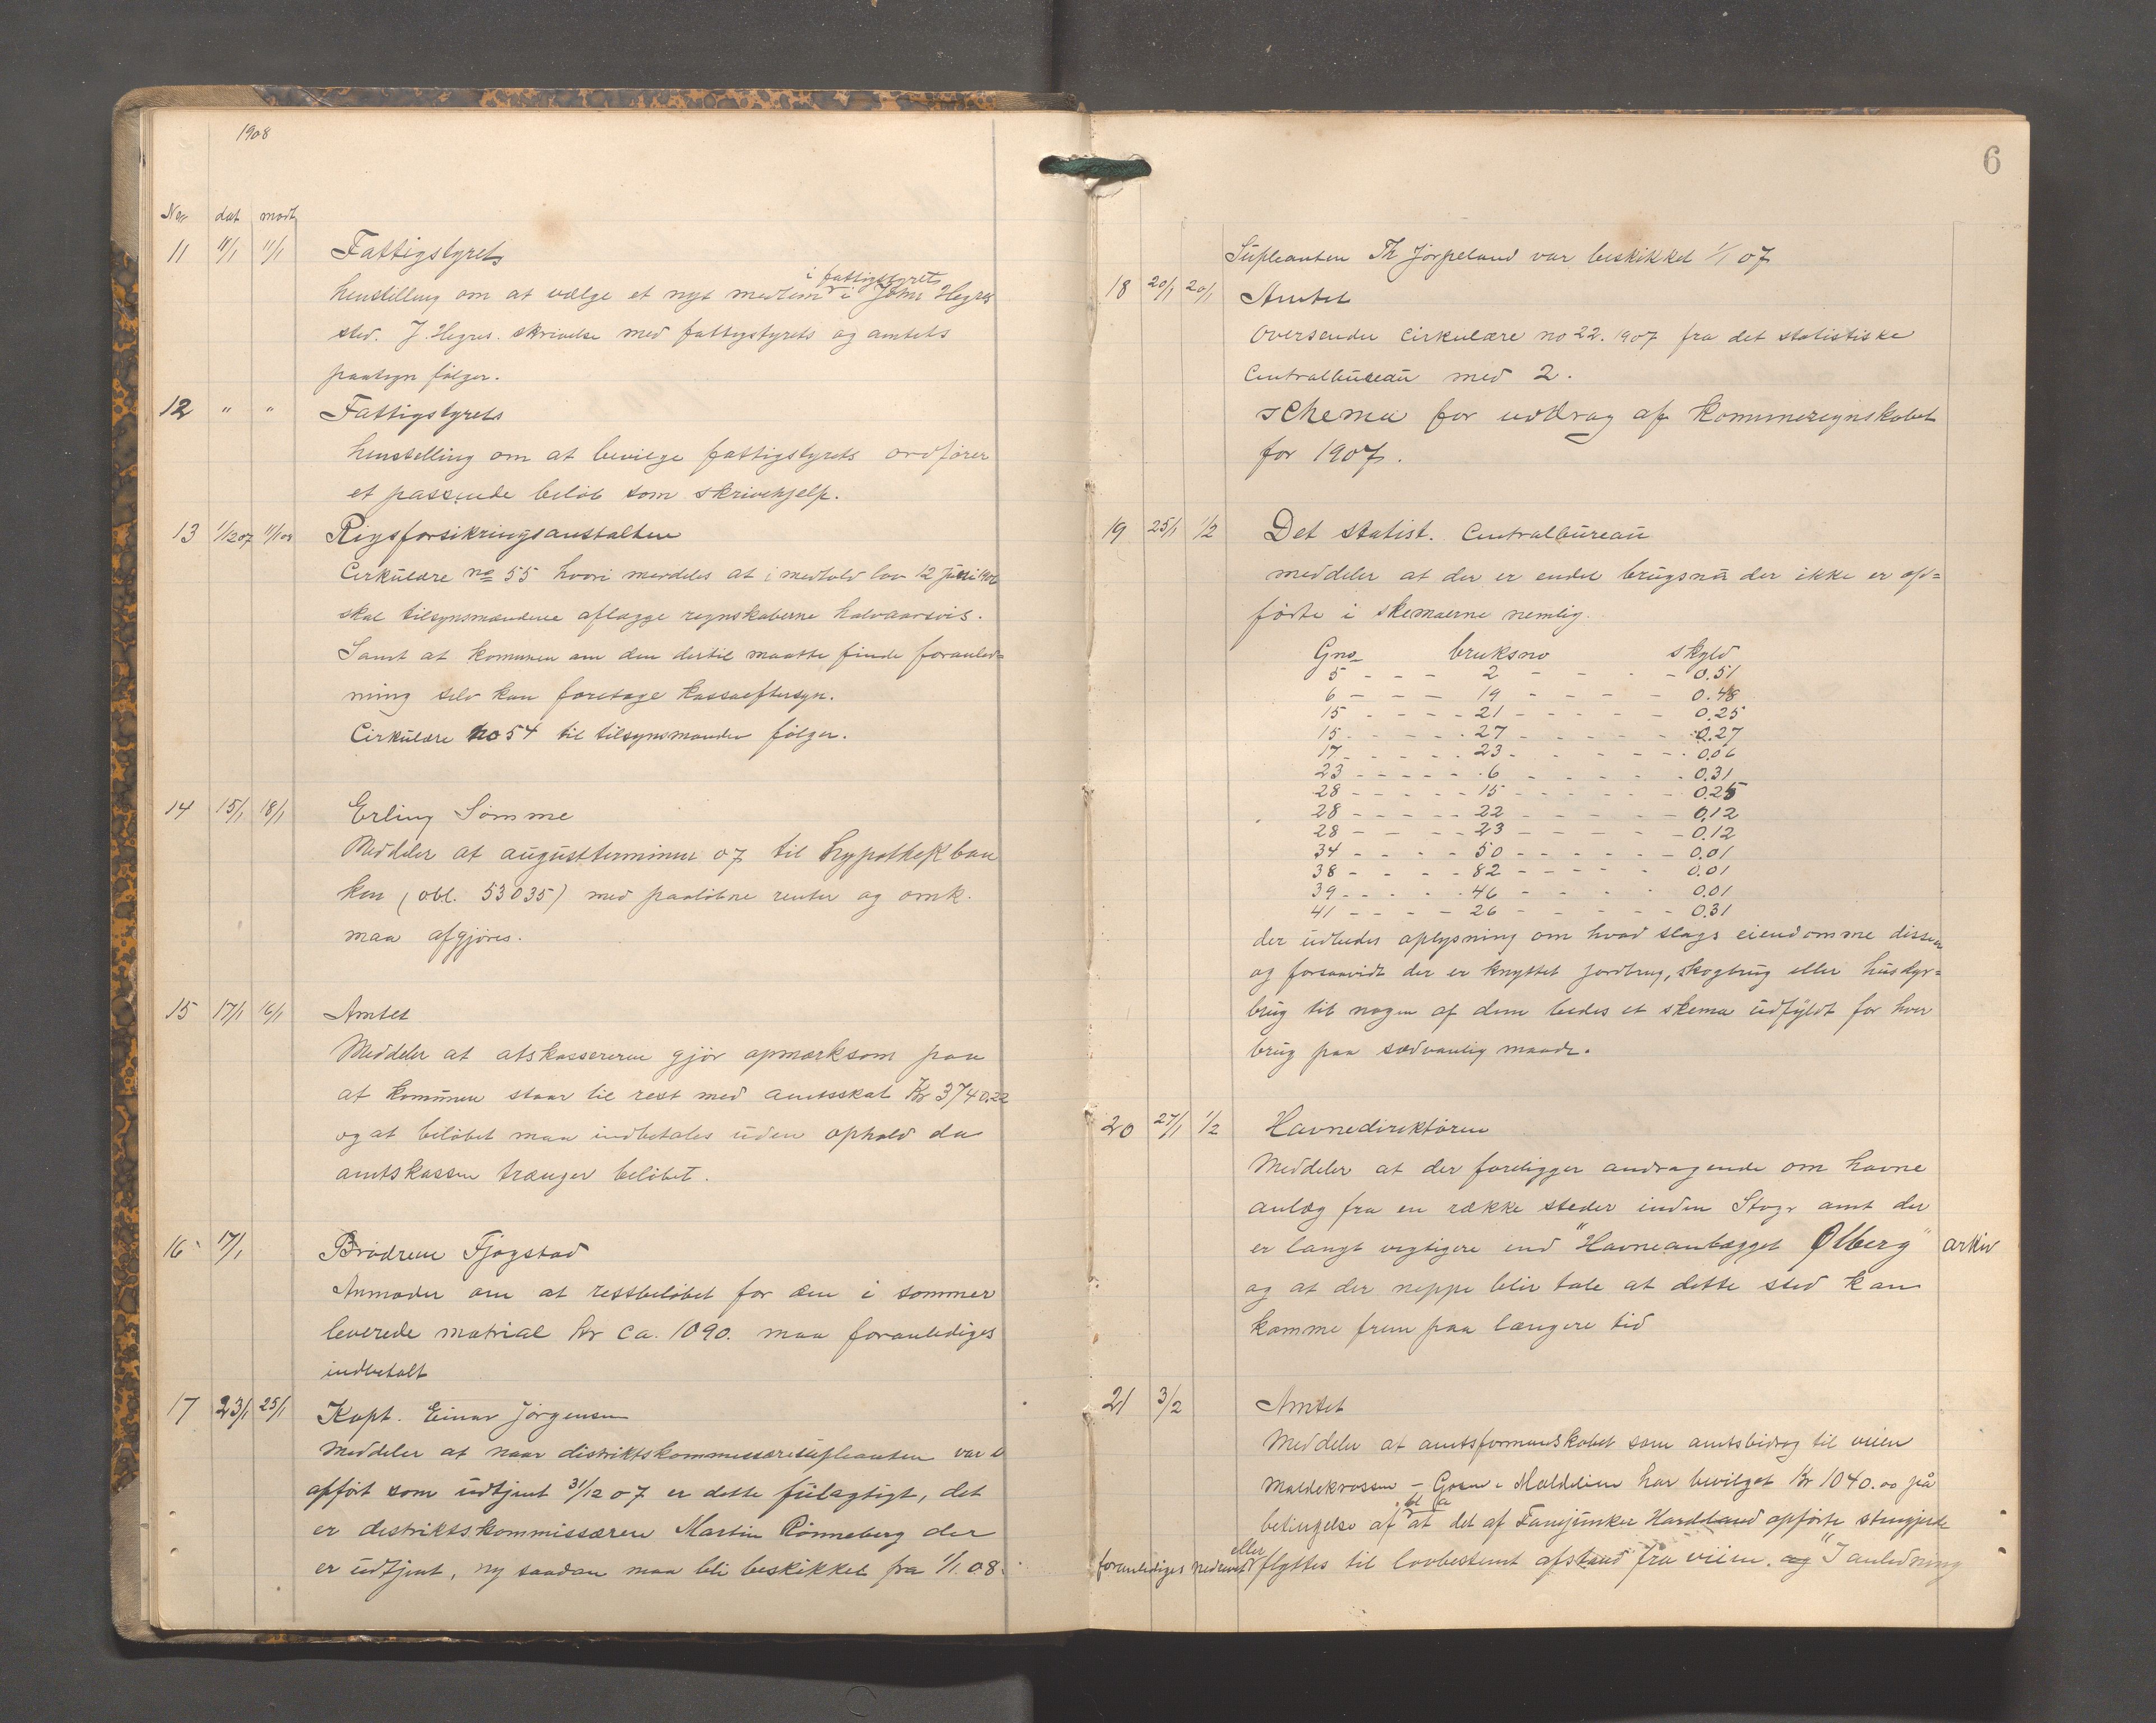 1908
No dat modt
11 11/1 11/1 Fattigstyrets
henstilling om at vælge et nyt medlem i fattigstyret i John Hegres
sted. J. Hegres. skrivelse med fattigstyrets og amtets
paategn følger.
12 " " Fattigstyrets
henstilling om at bevilge fattigstyrets ordfører
et passende beløb som skrivehjelp.
13 1/12 07 11/1 08 Rigsforsikringsanstalten
Cirkulære no 55 hvori meddeles at i medhold lov 12 juni 1906
skal tilsynsmændene aflægge regnskaberne halvaarsvis.
Samt at komunen om den dertil maatte finde foranled=
ning selv kan foretage kassaeftersyn.
Cirkulære no 54 til tilsynsmanden følger.
14 15/1 18/1 Erling Sømme
Meddeler at augustterminen 07 til hypothekban
ken (obl. 53035) med paaløbne renter og omk.
maa afgjøres.
15 17/1 16/1 Amtet
Meddeler at atskassereren gjør opmærksom paa
at komunen staar til rest med amtsskat Kr 3740.22
og at beløbet maa indbetales uden ophold da
amtskassen trænger beløbet.
16 17/1 Brødrene Fjogstad
Anmoder om at restbeløbet for den i sommer
leverede matrial kr ca. 1090. maa foranlediges
indbetalt
17 23/1 25/1 Kapt. Einar Jørgensen
Meddeler at naar distriktskommissærsupleanten var
opført som udtjent 31/12 07 er dette feilagtigt, det
er distriktskommissæren Martin Rønneberg der
er udtjent, ny saadan maa bli beskikket fra 1/1. 08.
6
Supleanten Th Jørpeland var beskikket 1/1 07
18 20/1 20/1 Amtet
Oversender Cirkulære no 22. 1907 fra det statistiske
Centralbureau med 2.
schema for uddrag af kommuneregnskabet
for 1907.
19 25/1 1/2 Det statist. Centralbureau
meddeler at der er endel brugsnr der ikke er op=
førte i skemaerne nemlig.
Gno bruksno skyld
5 - - - 2 - - - 0.51
6 - - - 19 - - - 0.48
15 - - - 21 - - - 0.25
15 - - - 27 - - - 0.27
17 - - - 23 - - - 0.06
23 - - - 6 - - - 0.31
28 - - - 15 - - - 0.25
28 - - - 22 - - - 0.12
28 - - - 23 - - - 0.12
34 - - - 50 - - - 0.01
38 - - - 82 - - - 0.01
39 - - - 46 - - - 0.01
41 - - - 26 - - - 0.31
der udbedes oplysning om hvad slags eiendomme disse er
og forsaavidt der er knyttet jordbrug, skogbrug eller husdyr=
brug til nogen af dem bedes et skema udfyldt for hver
brug paa sædvanlig maade.
20 27/1 1/2 Havnedirektøren
Meddeler at der foreligger andragende om havne
anlæg fra en række steder inden Stvgr amt der
er langt vigtigere end "Havneanlægget Ølberg" arkiv
og at der neppe blir tale at dette sted kan
komme frem paa længere tid
21 3/2 Amtet
Meddeler at amtsformandskabet som amtsbidrag til veien
Maldekrossen - i Maldelien har bevilget Kr 1040.00 på
betingelse af bl a at det af Fanejunker Hardeland opførte stengjerde
foranlediges nedrevet eller flyttes til lovbestemt afstand fra veien. og "I anledning